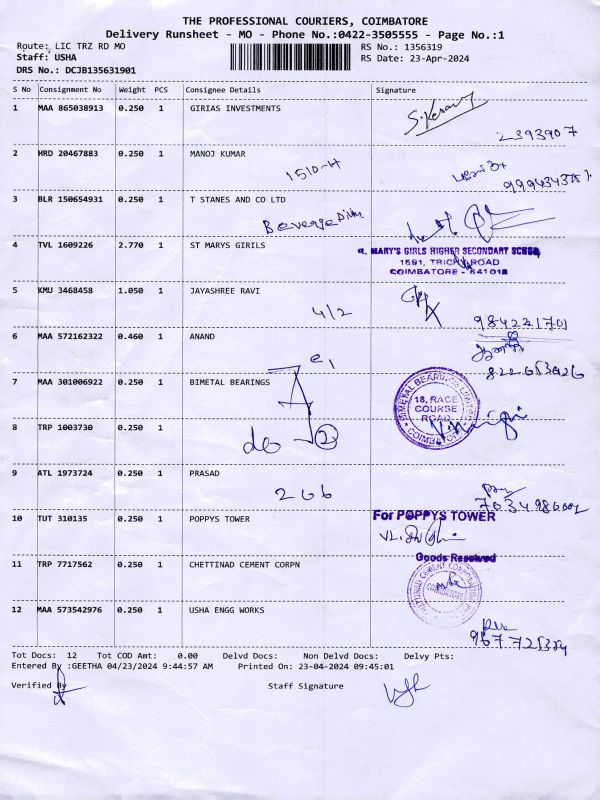 THE PROFESSIONAL COURIERS, COIMBATORE
Delivery Runsheet - MO - Phone No.:0422-3505555 - Page No.:1
Route: LIC TRZ RD MO RS No.: 1356319
Staff: USHA RS Date: 23-Apr-2024
DRS No.: DCJB135631901
S No Consignment No Weight PCS Consignee Details Signature
1 MAA 865038913 0.250 1 GIRIAS INVESTMENTS S. Kesavan
2393907
2 HRD 20467883 0.250 1 MANOJ KUMAR
1510-H
3 BLR 150654931 0.250 1 T STANES AND CO LTD
4 TVL 1609226 2.770 1 ST MARYS GIRILS MARY'S GIRLS HIGHER SECONDARY SCHOOL
1591, TRICHY ROAD
COIMBATORE - 641018
5 KMU 3468458 1.050 1 JAYASHREE RAVI
4/2
6 MAA 572162322 0.460 1 ANAND
7 MAA 301006922 0.250 1 BIMETAL BEARINGS BIMETAL BEARINGS LIMITED
18, RACE
COURSE
ROAD
COIMBATORE
8 TRP 1003730 0.250 1
do 2
9 ATL 1973724 0.250 1 PRASAD
266
10 TUT 310135 0.250 1 POPPYS TOWER For POPPYS TOWER
Goods Received
11 TRP 7717562 0.250 1 CHETTINAD CEMENT CORPN
COIMBATORE
12 MAA 573542976 0.250 1 USHA ENGG WORKS
Tot Docs: 12 Tot COD Amt: 0.00 Delvd Docs: Non Delvd Docs: Delvy Pts:
Entered By :GEETHA 04/23/2024 9:44:57 AM Printed On: 23-04-2024 09:45:01
Verified By Staff Signature